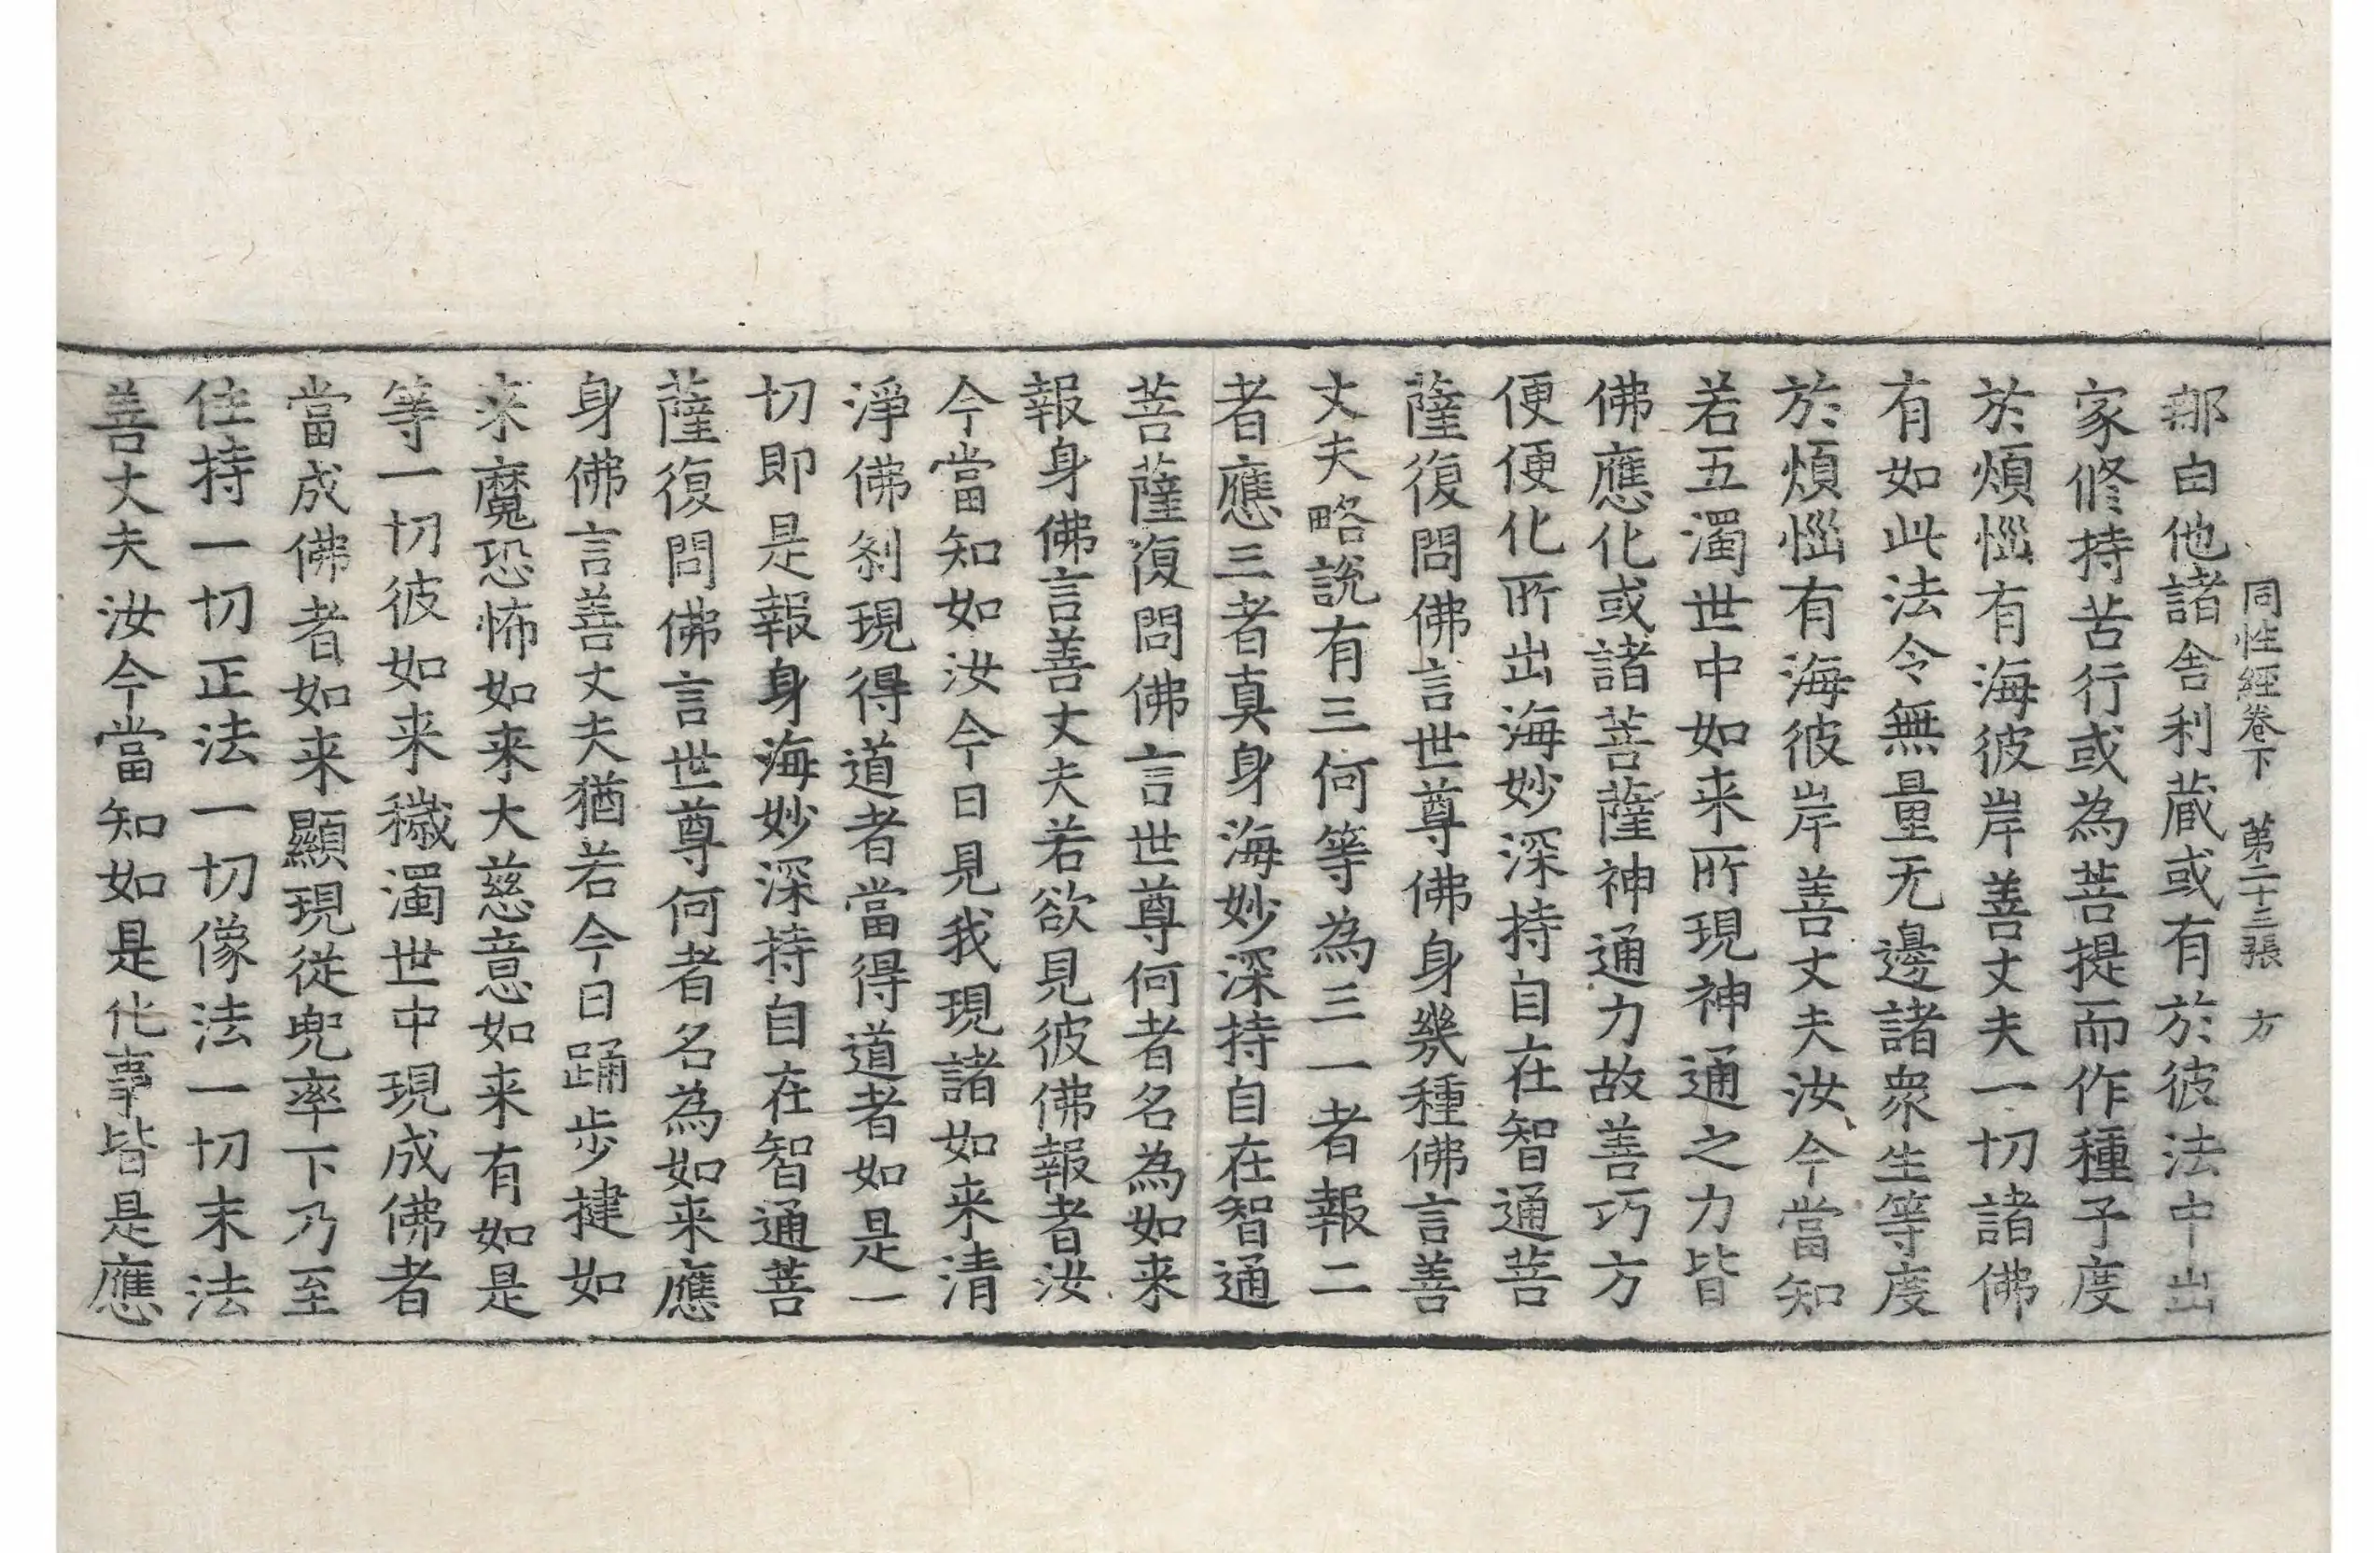 同性經卷下 第二十三張 方
那白他諸舍利蔵或有於彼法中出
家修持苦行或為菩提而作種子度
於煩惱有海彼岸善丈夫一切諸佛
有如此法令無量无邊諸衆生等度
於煩惱有海彼岸善丈夫汝今當知
若五濁世中如来所現神通之力皆
佛應化或諸菩薩神通力故善巧方
便便化所出海妙深持自在智通菩
薩復問佛言世尊佛身幾種佛言善
丈夫略說有三何等為三一者報二
者應三者真身海妙深持自在智通
菩薩復問佛言世尊何者名為如来
報身佛言善丈夫若欲見彼佛報者汝
今當知如汝今日見我現諸如来清
淨佛刹現得道者當得道者如是一
切即是報身海妙深持自在智通菩
薩復問佛言世尊何者名為如来應
身佛言善丈夫猶若今日踊步揵如
来魔恐怖如来大慈意如来有如是
等一切彼如来穢濁世中現成佛者
當成佛者如来顯現従兜率下乃至
住持一切正法一切像法一切末法
善丈夫汝今當知如是化事皆是應